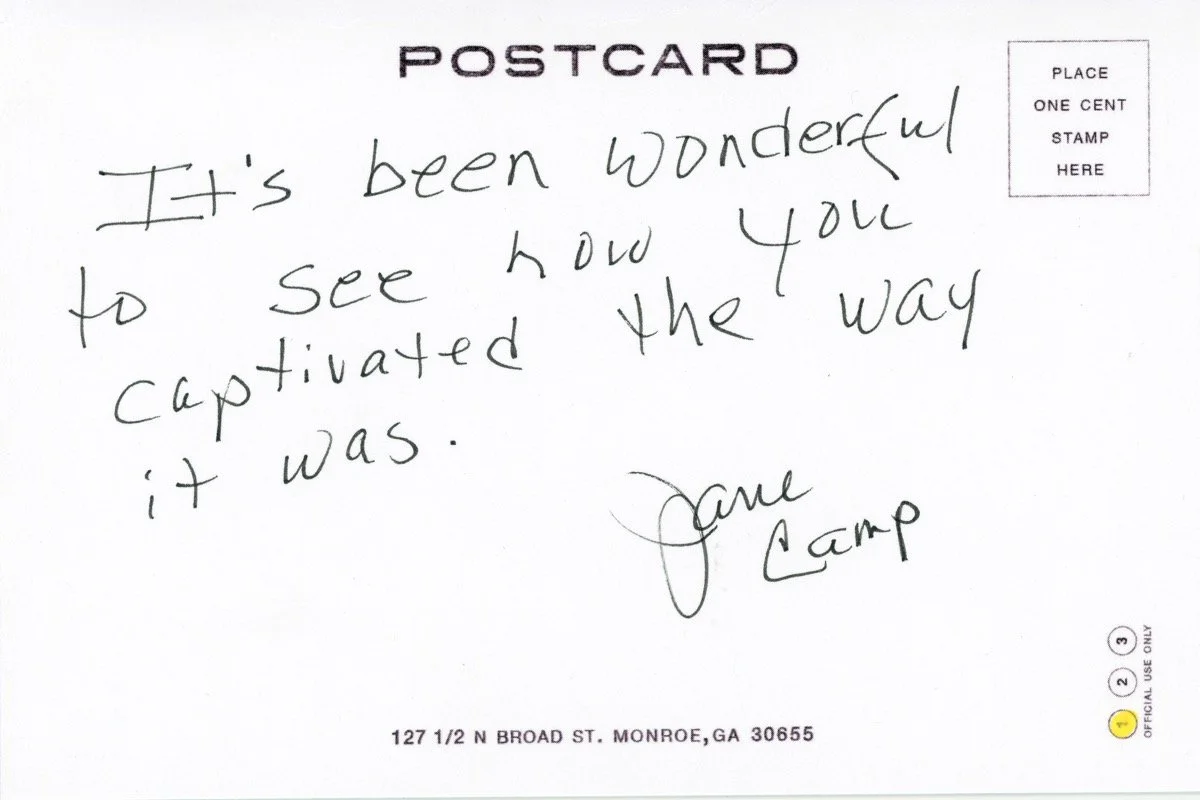 POSTCARD
PLACE
ONE CENT
STAMP
HERE
It's been wonderful
to see how you
captivated the way
it was.
Jane
Camp
127 1/2 N BROAD ST. MONROE, GA 30655
1 2 3
OFFICIAL USE ONLY